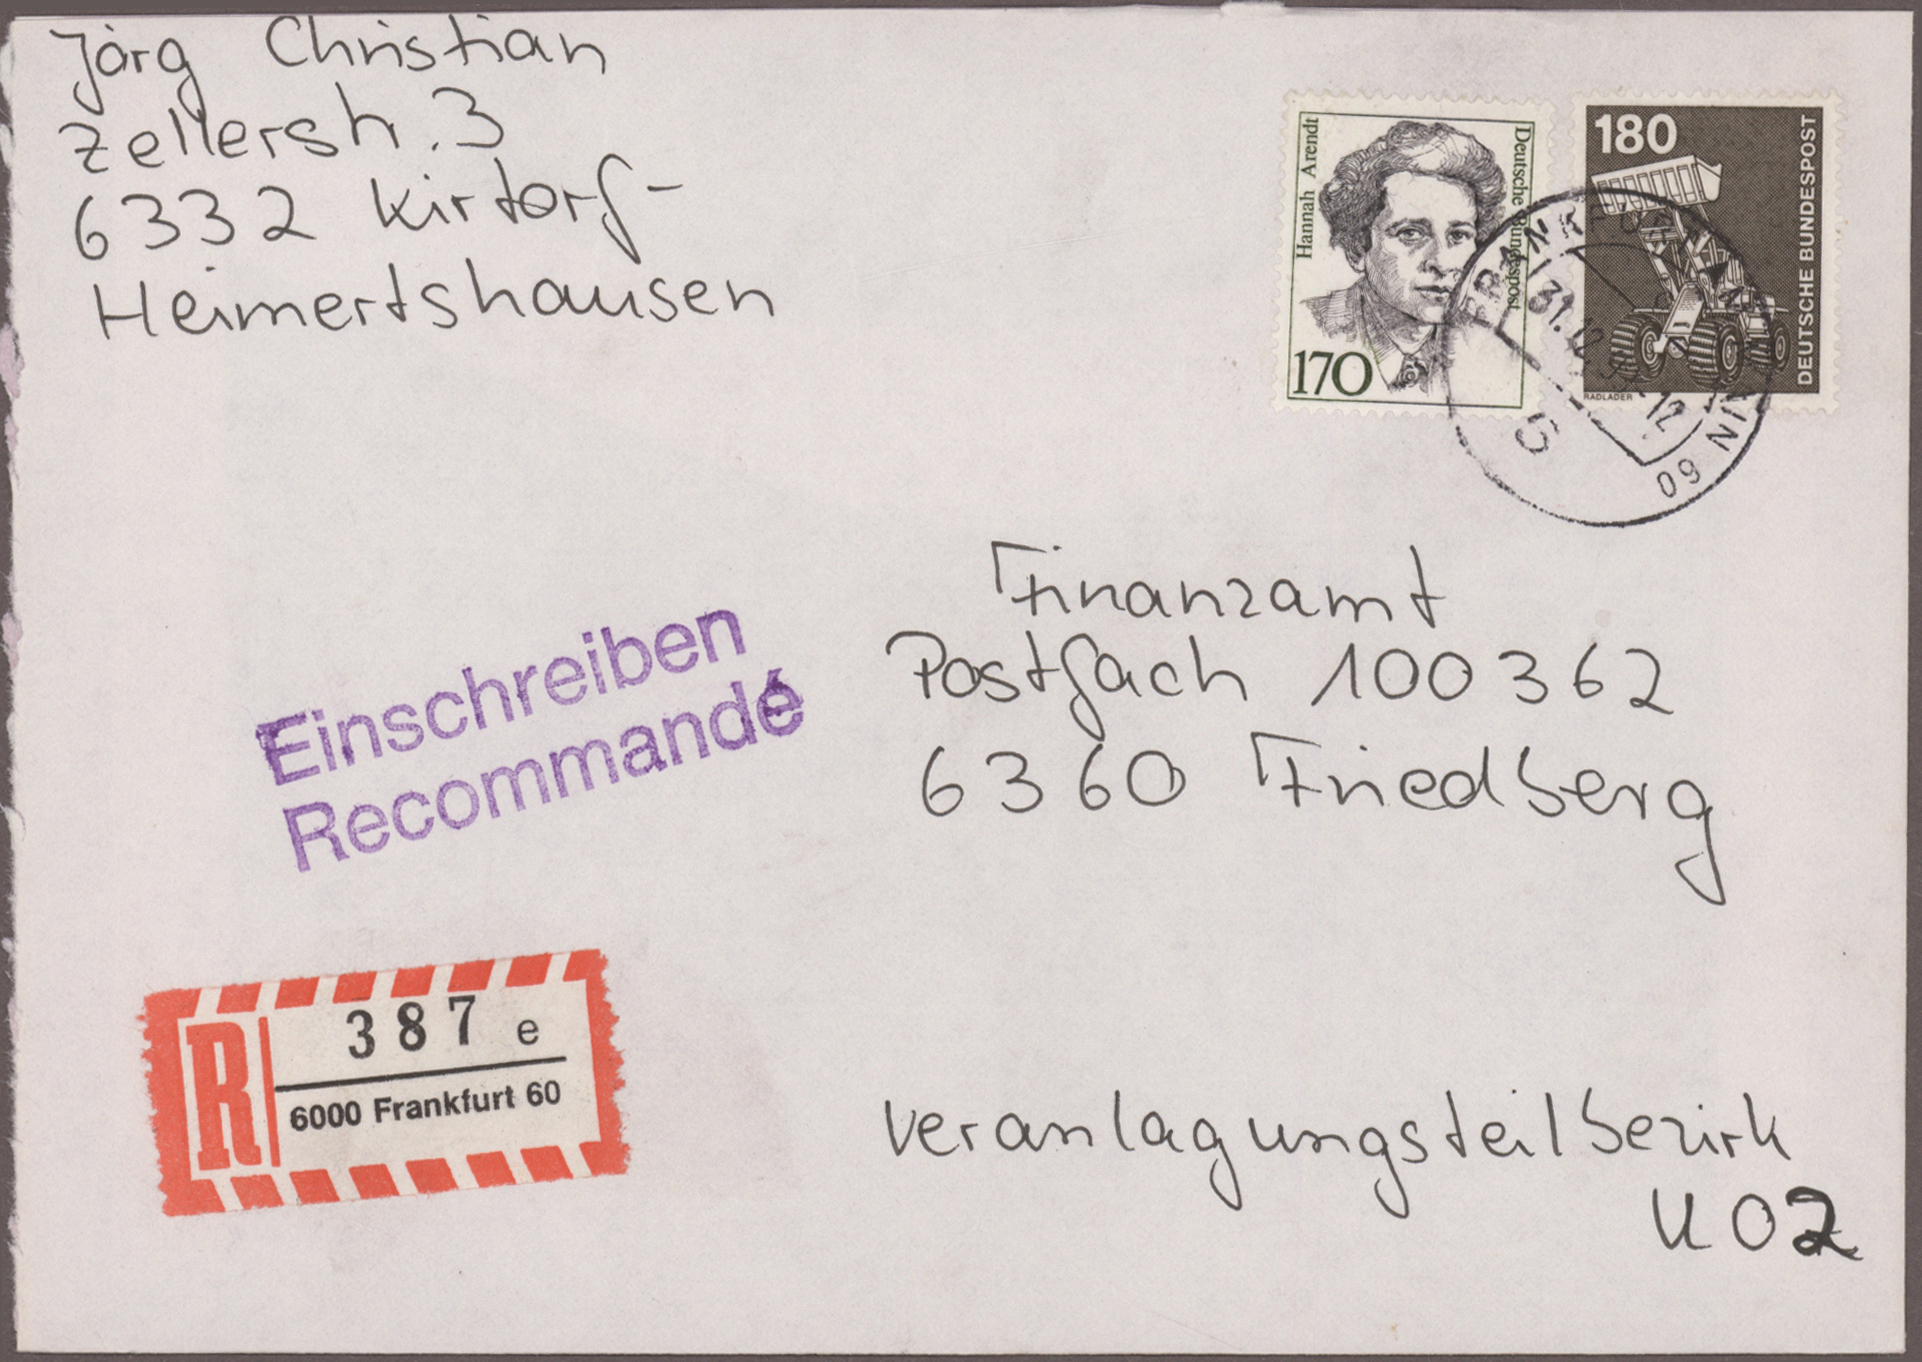 Jörg Christian
Zellerstr. 3
6332 Kirtorf-
Heimertshausen
Hannah Arendt
Deutsche Bundespost
170
180
DEUTSCHE BUNDESPOST
RADLADER
31.12
12
60
Finanzamt
Postfach 100362
6360 Friedberg
Einschreiben
Recommandé
R
387 e
6000 Frankfurt 60
Veranlagungsteilbezirk
K02